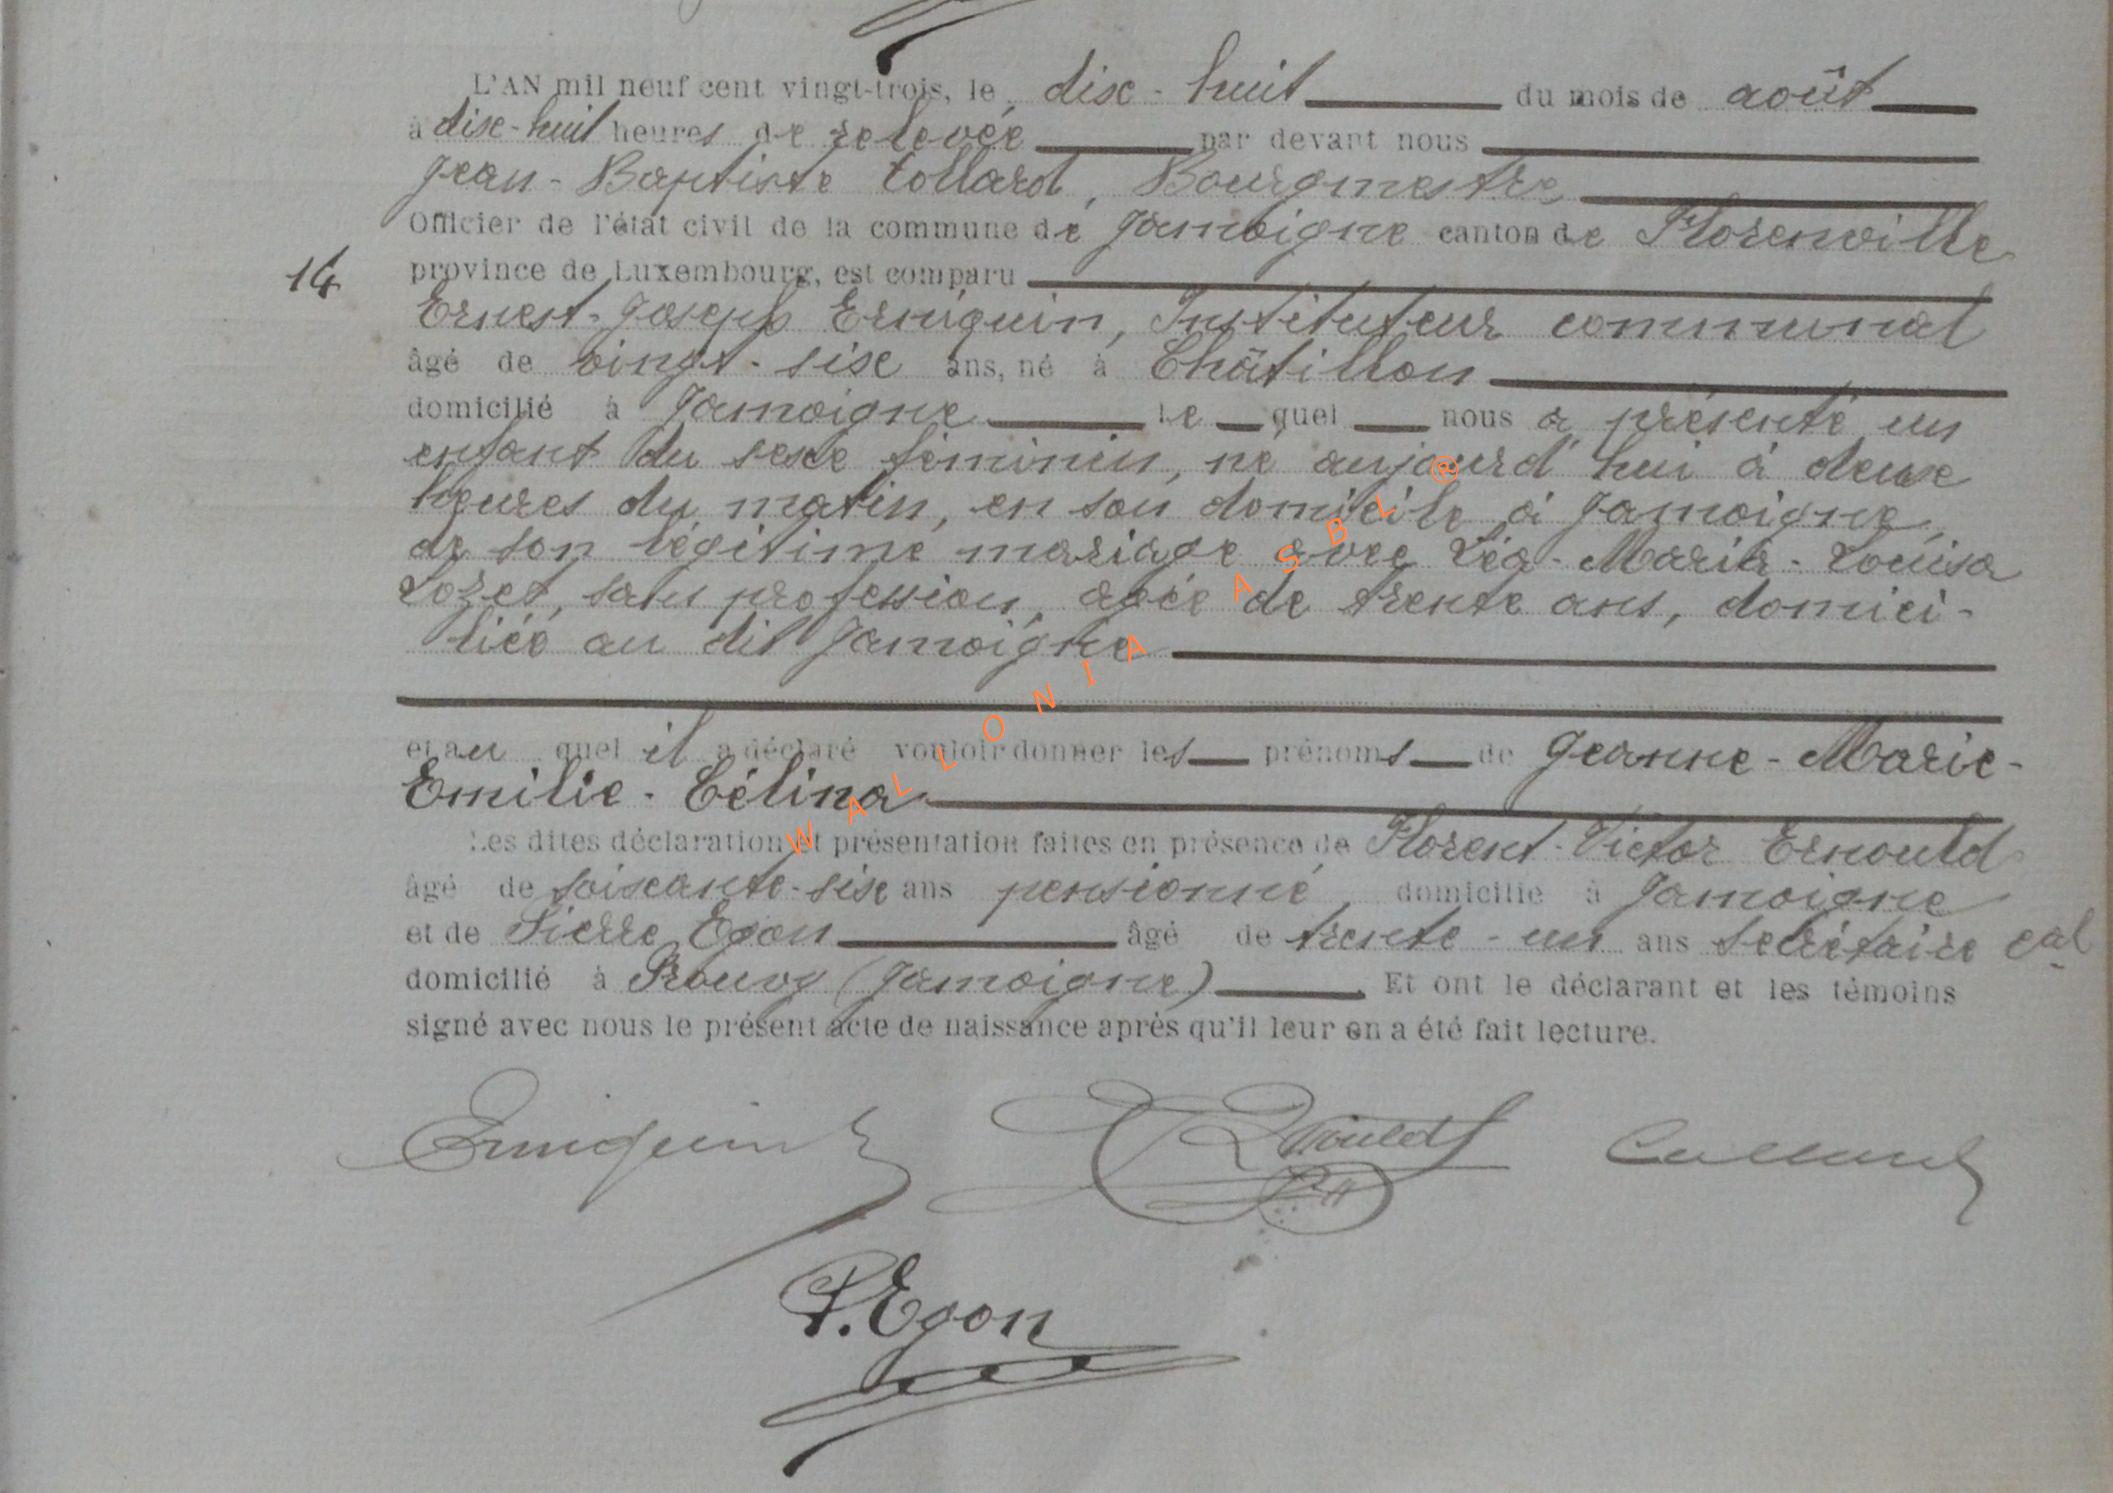 L'AN mil neuf cent vingt-trois, le dix-huit du mois de août
à dix-huit heures de relevée par devant nous
Jean-Baptiste Collard, Bourgmestre
Officier de l'état civil de la commune de Jamoigne canton de Florenville
14 province de Luxembourg, est comparu
Ernest-Joseph Erniquin, Instituteur communal
âgé de vingt-six ans, né à Châtillon
domicilié à Jamoigne le quel nous a présenté un
enfant du sexe féminin, né aujourd'hui à deux
heures du matin, en son domicile à Jamoigne,
de son légitime mariage avec Léa-Maria-Louisa
Lozet, sans profession, agée de trente ans, domici-
liée au dit Jamoigne
et au quel il a déclaré vouloir donner les prénoms de Jeanne-Marie-
Emilie-Célina
Les dites déclaration et présentation faites en présence de Florent-Victor Ernould
âgé de soixante-six ans pensionné, domicilié à Jamoigne
et de Pierre Egon âgé de trente-un ans secrétaire cal
domicilié à Prouvy (Jamoigne). Et ont le déclarant et les témoins
signé avec nous le présent acte de naissance après qu'il leur en a été fait lecture.
Erniquin Ernould Collard
P. Egon
WALLONIA ASBL ®